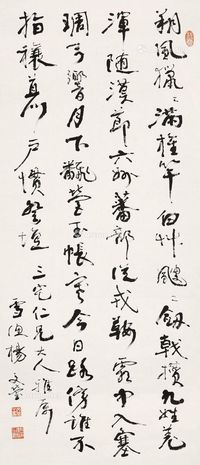 朔風獵〻滿旗竿白艸颼〻劔戟攢九姓羌
渾隨漢節六州蕃部從戎鞍霜中入塞
琱弓響月下飜營玉帳寒今日路傍誰不
指穰苴門戶慣登壇三完仁兄大人雅屬
雪漁楊文瑩